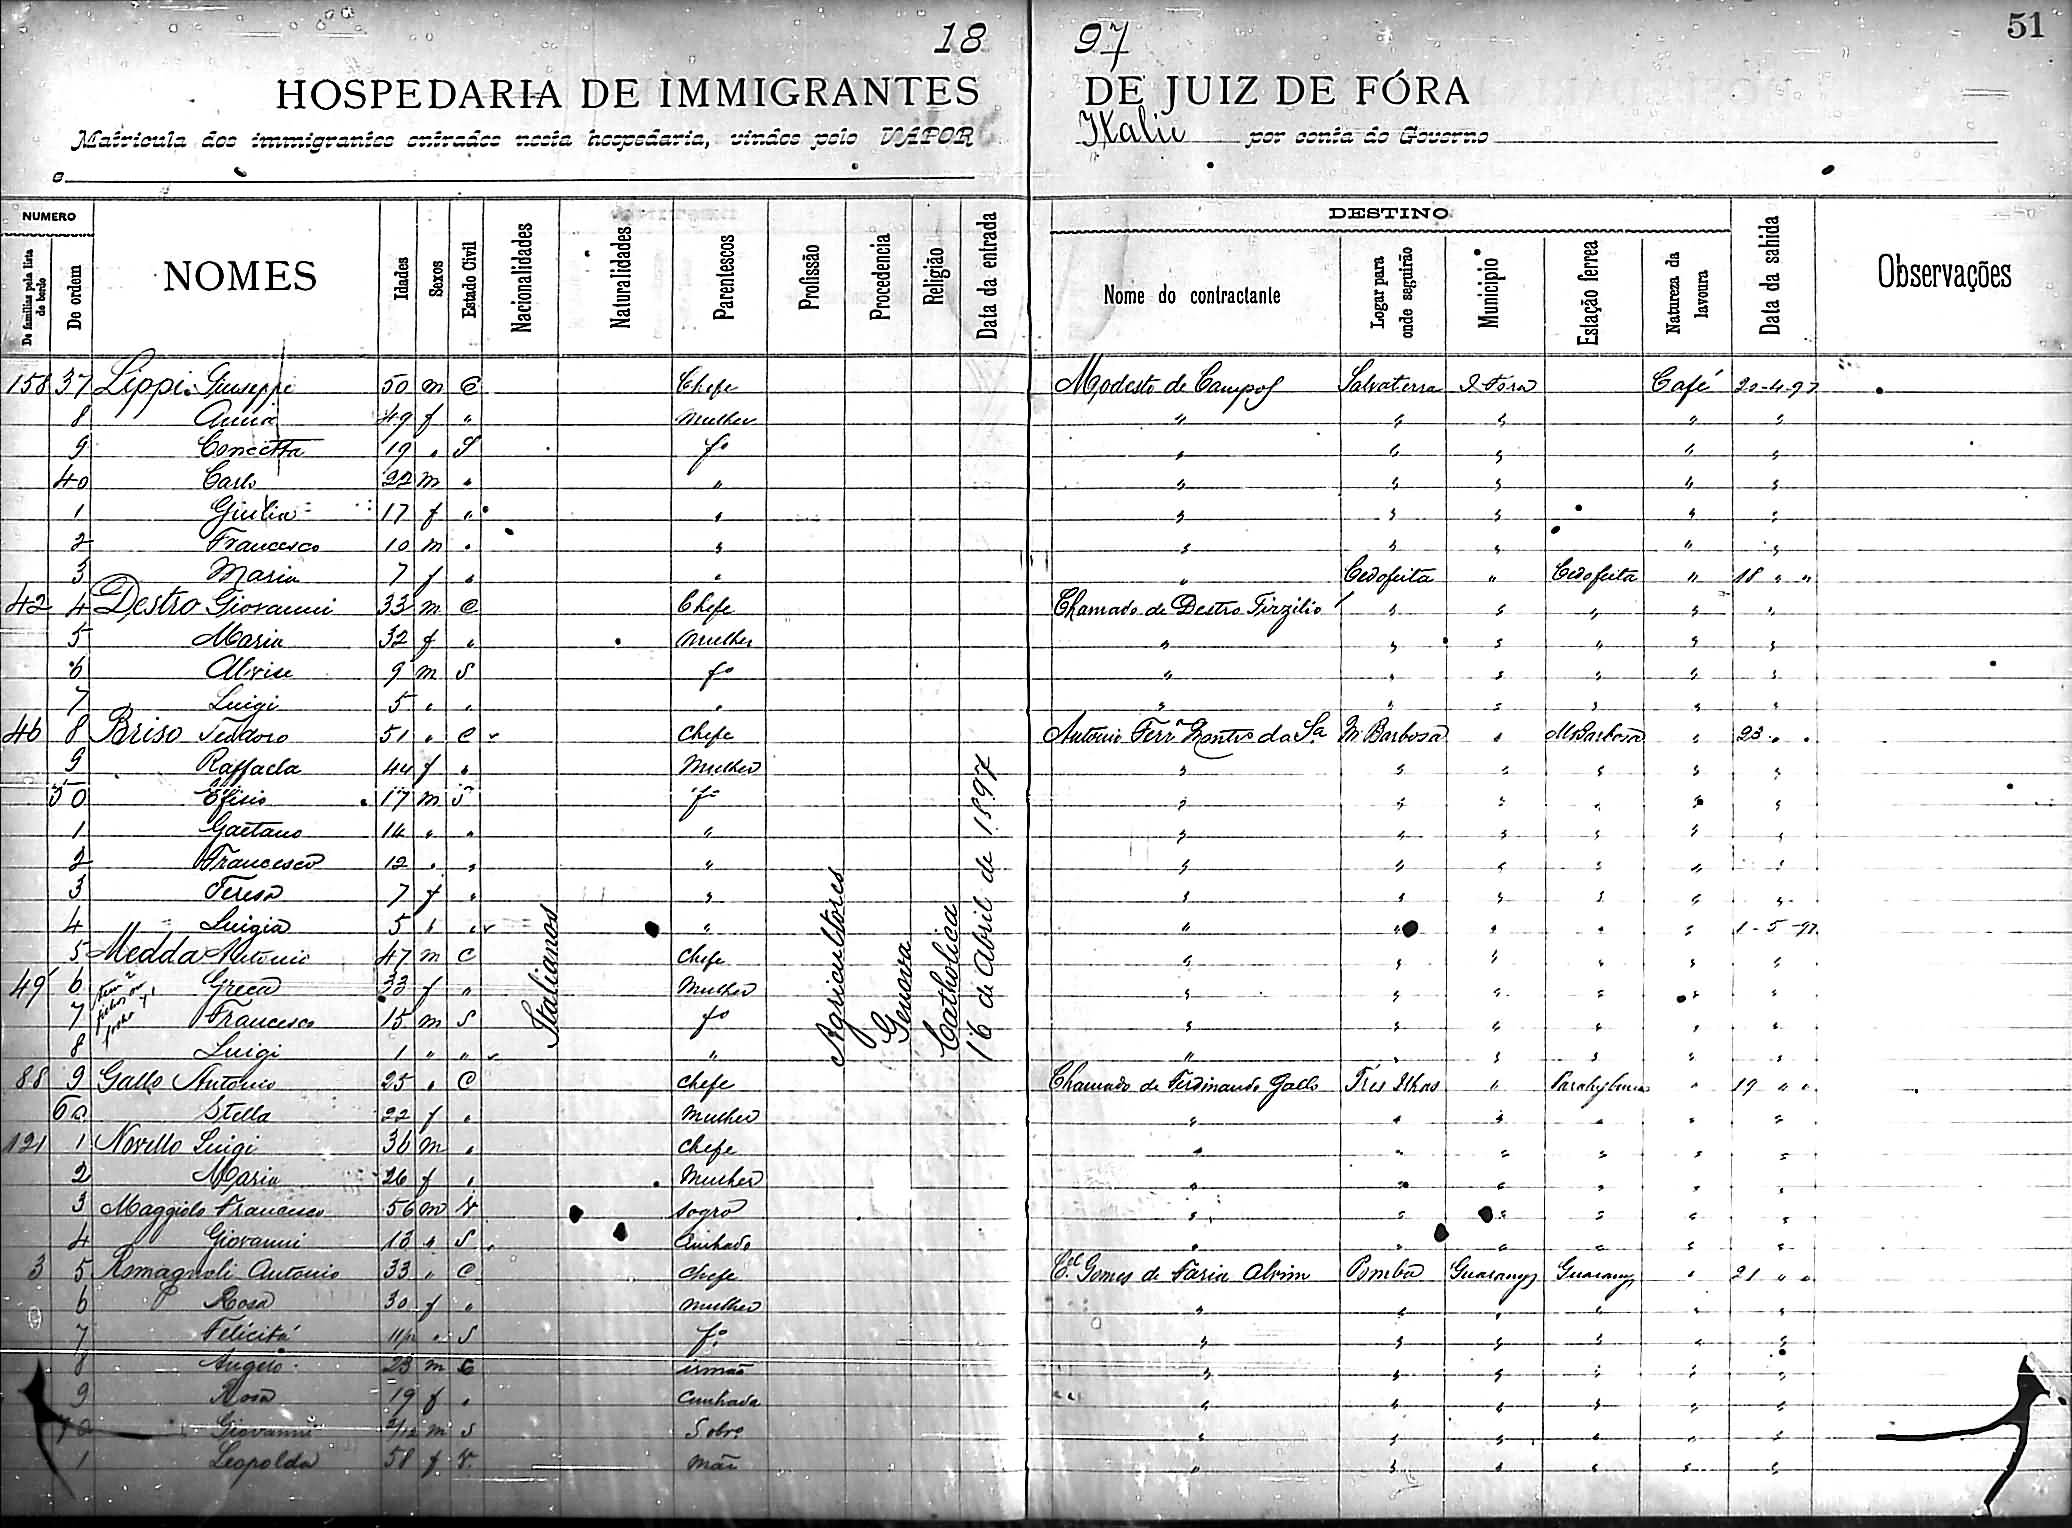 18 97
51
HOSPEDARIA DE IMMIGRANTES DE JUIZ DE FÓRA
Matricula dos immigrantes entrados nesta hospedaria, vindos pelo VAPOR Italie por conta do Governo
a
NUMERO
De familias pela lista de bordo
De ordem
NOMES
Idades
Sexos
Estado Civil
Nacionalidades
Naturalidades
Parentescos
Profissão
Procedencia
Religião
Data da entrada
DESTINO
Nome do contractante
Logar para onde seguirão
Municipio
Estação ferrea
Natureza da lavoura
Data da sahida
Observações
158 37 Lippi Giuseppe 50 m C Chefe Modesto de Campos Salvaterra J. Fora Café 20-4-97
8 Anna 49 f " Mulher " " " " "
9 Concetta 19 " S fo " " " " "
40 Carlo 22 m " " " " " " "
1 Giulia 17 f " " " " " " "
2 Francesco 10 m " " " " " " "
3 Maria 7 f " " " Cedofeita " Cedofeita " 18 " "
42 4 Destro Giovanni 33 m C Chefe Chamado de Destro Tirzilio " " " " "
5 Maria 32 f " Mulher " " " " " "
6 Alvise 9 m S fo " " " " " "
7 Luigi 5 " " " " " " " " "
46 8 Briso Teodoro 51 " C Chefe Antonio Ferrª Montes da Sª M. Barbosa " M. Barbosa " 23 " "
9 Raffaela 44 f " Mulher " " " " " "
50 Efisio 17 m S fo " " " " " "
1 Gaetano 14 " " " " " " " " "
2 Francesco 12 " " " " " " " " "
3 Teresa 7 f " " " " " " " "
4 Luigia 5 " " " " " " " " 1-5-97
5 Medda Antonio 47 m C Chefe " " " " " "
49 6 Greca 33 f " Mulher " " " " " "
7 Francesco 15 m S fo " " " " " "
8 Luigi 1 " " " " " " " " "
88 9 Gallo Antonio 25 " C Chefe Chamado de Ferdinando Gallo Tres Ilhas " Parahybuna " 19 " "
60 Stella 22 f " Mulher " " " " " "
121 1 Novello Luigi 36 m " Chefe " " " " " "
2 Maria 26 f " Mulher " " " " " "
3 Maggiolo Francesco 56 m V Sogro " " " " " "
4 Giovanni 13 " S Cunhado " " " " " "
3 5 Romagnoli Antonio 33 " C Chefe Cel Gomes de Faria Alvim Pomba Guarany Guarany " 21 " "
6 Rosa 30 f " Mulher " " " " " "
7 Felicitá " S fo " " " " " "
8 Angelo 23 m C irmão " " " " " "
9 Rosa 19 f " Cunhada " " " " " "
70 Giovanni 2/12 m S Sobro " " " " " "
1 Leopolda 58 f V. Mãe " " " " " "
Italianos
Agricultores
Genova
Catholica
16 de Abril de 1897